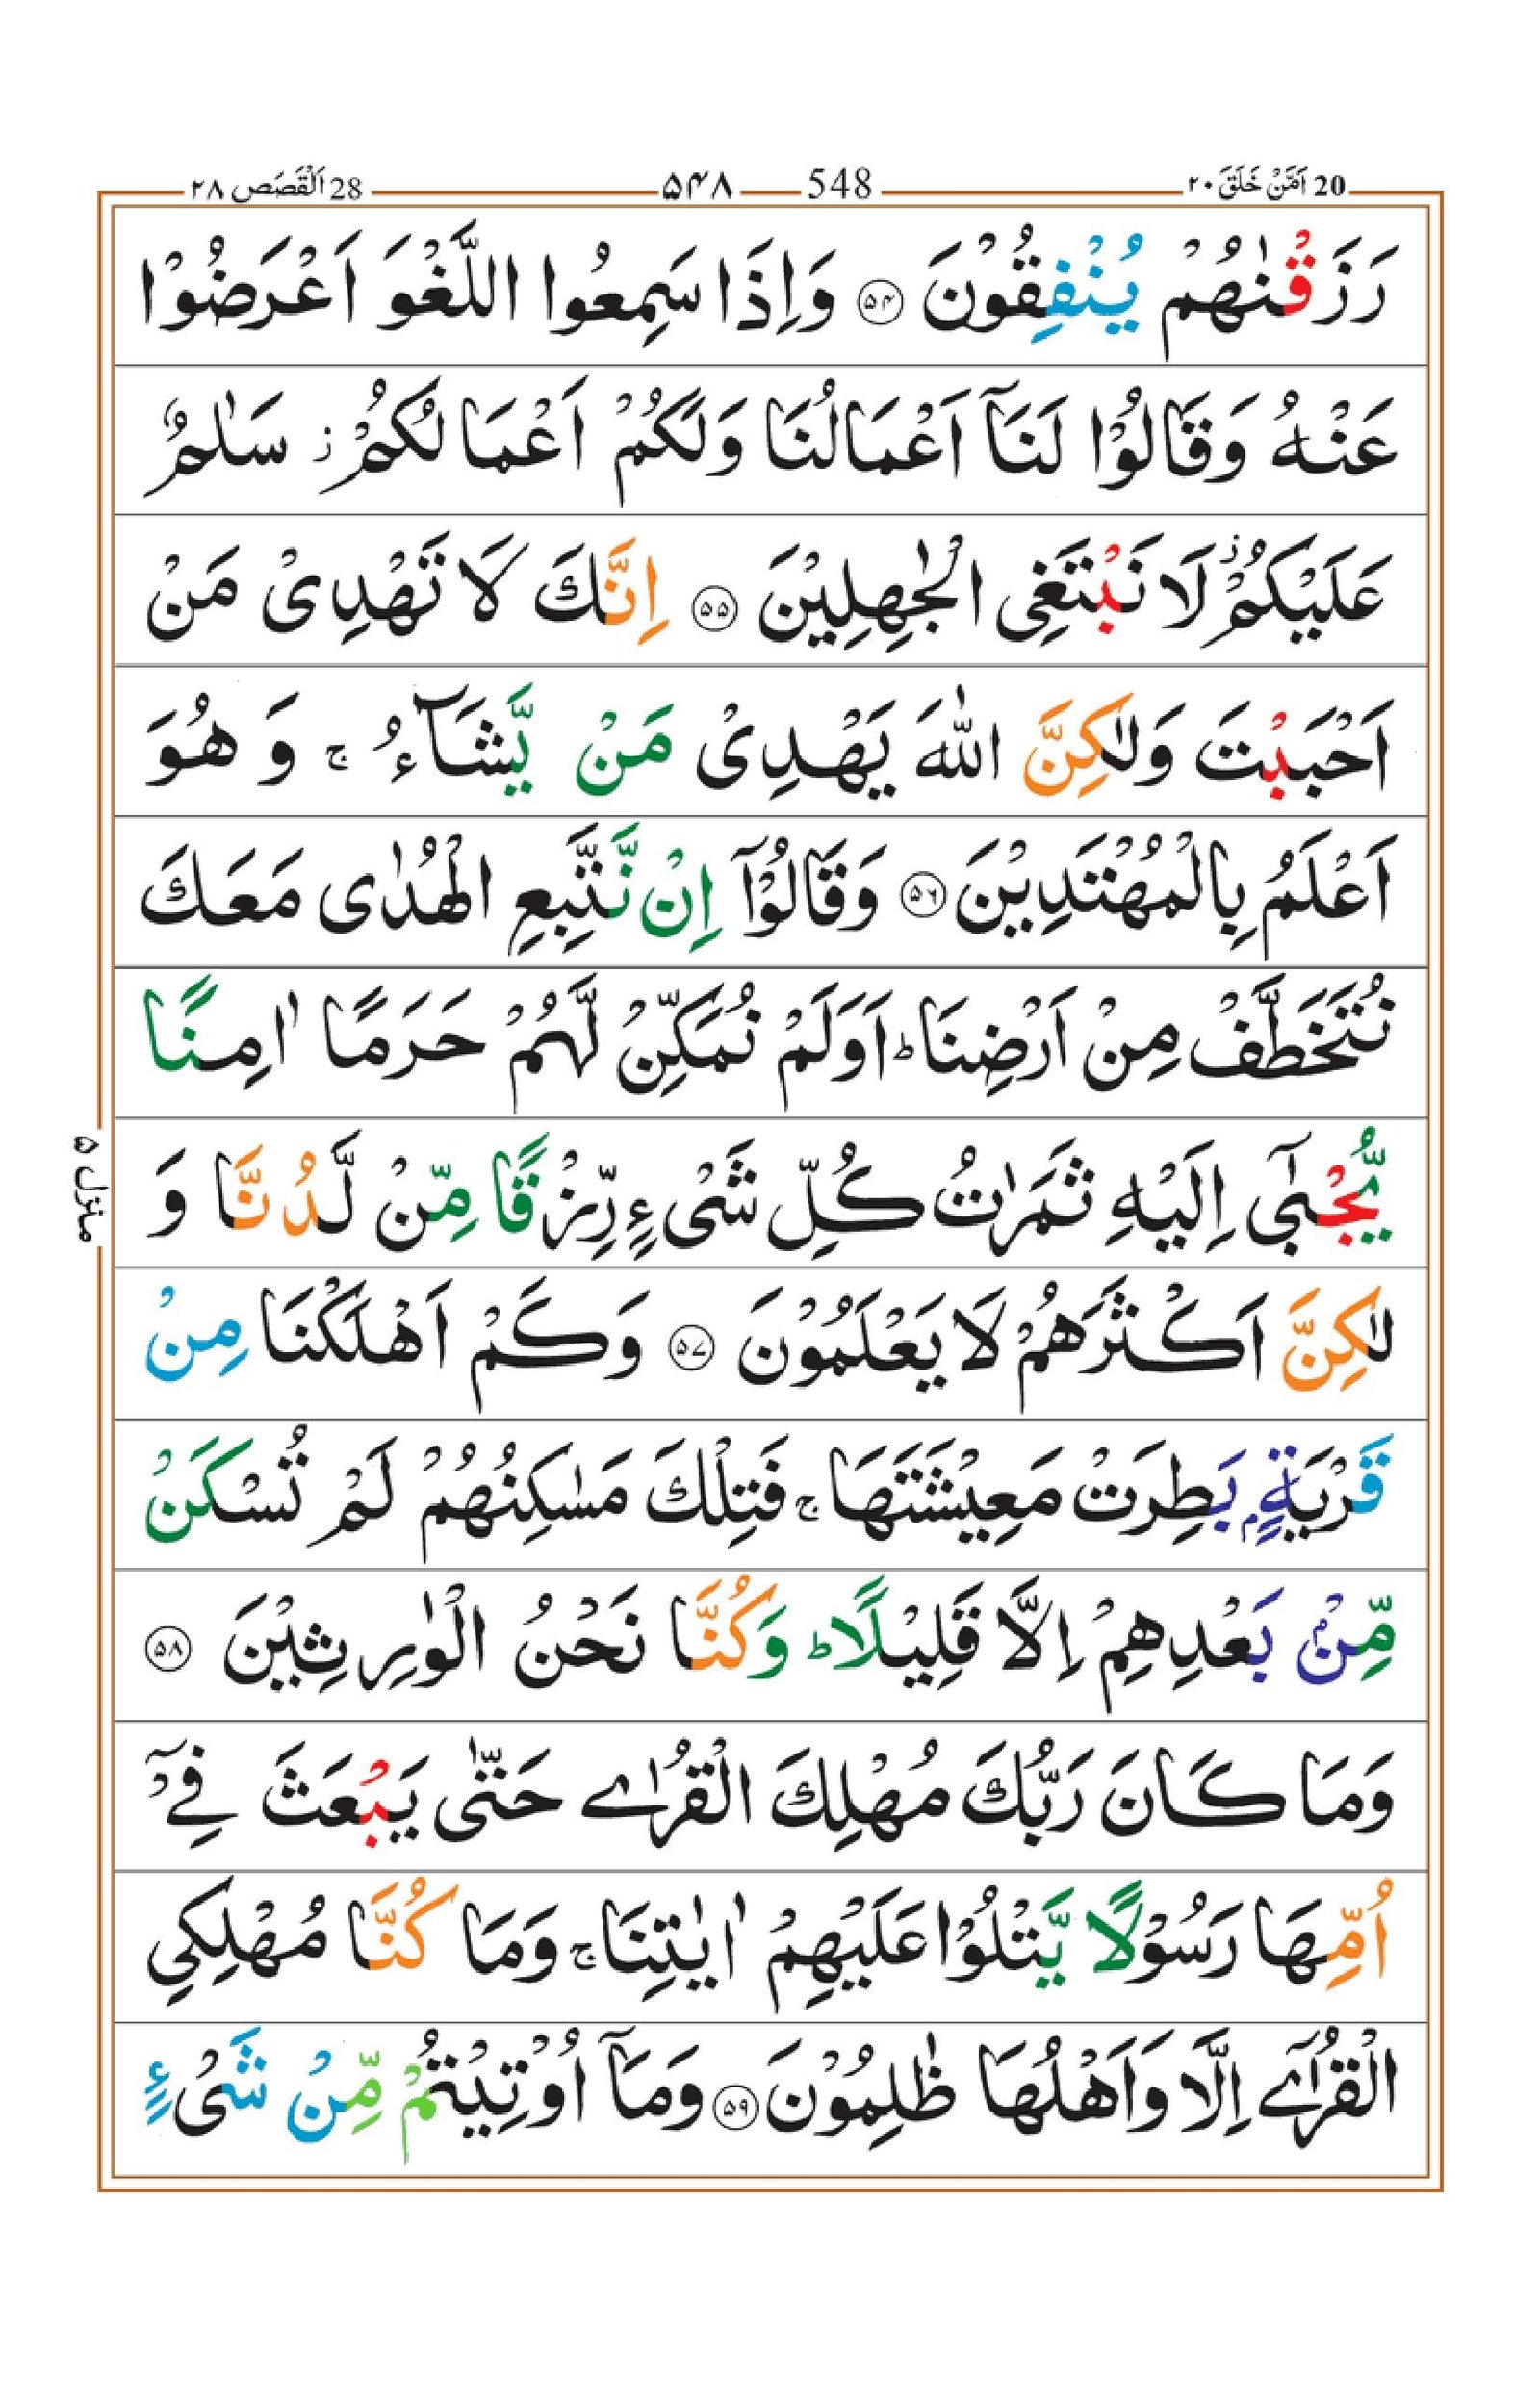 20 اَمَّنْ خَلَقَ ۲۰ 548 ۵۴۸ 28 اَلْقَصَص ۲۸
رَزَقْنٰهُمْ يُنْفِقُوْنَ ۵۴ وَاِذَا سَمِعُوا اللَّغْوَ اَعْرَضُوْا
عَنْهُ وَقَالُوْا لَنَاۤ اَعْمَالُنَا وَلَكُمْ اَعْمَالُكُمْ ز سَلٰمٌ
عَلَيْكُمْ ز لَا نَبْتَغِى الْجٰهِلِيْنَ ۵۵ اِنَّكَ لَا تَهْدِىْ مَنْ
اَحْبَبْتَ وَلٰكِنَّ اللّٰهَ يَهْدِىْ مَنْ يَّشَآءُ ج وَ هُوَ
اَعْلَمُ بِالْمُهْتَدِيْنَ ۵۶ وَقَالُوْۤا اِنْ نَّتَّبِعِ الْهُدٰى مَعَكَ
نُتَخَطَّفْ مِنْ اَرْضِنَا ط اَوَلَمْ نُمَكِّنْ لَّهُمْ حَرَمًا اٰمِنًا
يُّجْبٰٓى اِلَيْهِ ثَمَرٰتُ كُلِّ شَىْءٍ رِّزْقًا مِّنْ لَّدُنَّا وَ
لٰكِنَّ اَكْثَرَهُمْ لَا يَعْلَمُوْنَ ۵۷ وَكَمْ اَهْلَكْنَا مِنْ
قَرْيَةٍۭ بَطِرَتْ مَعِيْشَتَهَا ج فَتِلْكَ مَسٰكِنُهُمْ لَمْ تُسْكَنْ
مِّنْۢ بَعْدِهِمْ اِلَّا قَلِيْلًا ط وَكُنَّا نَحْنُ الْوٰرِثِيْنَ ۵۸
وَمَا كَانَ رَبُّكَ مُهْلِكَ الْقُرٰى حَتّٰى يَبْعَثَ فِىْۤ
اُمِّهَا رَسُوْلًا يَّتْلُوْا عَلَيْهِمْ اٰيٰتِنَا ج وَمَا كُنَّا مُهْلِكِى
الْقُرٰٓى اِلَّا وَاَهْلُهَا ظٰلِمُوْنَ ۵۹ وَمَاۤ اُوْتِيْتُمْ مِّنْ شَىْءٍ
منزل ۵